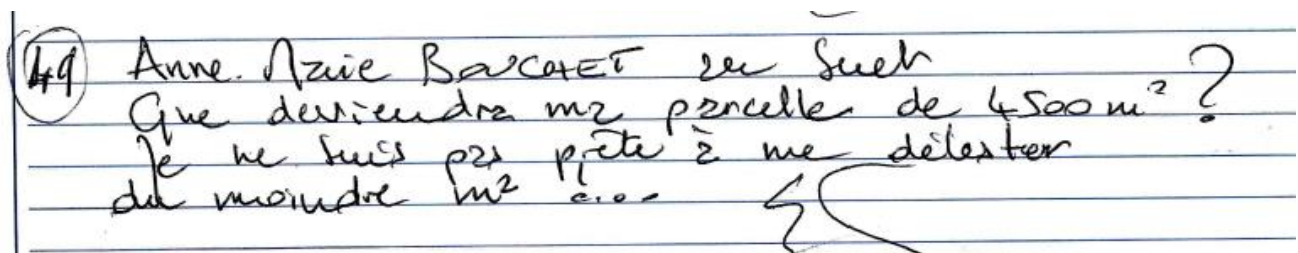 49 Anne-Marie BOUCHET
Que deviendra ma parcelle de 4500 m² ?
Je ne suis pas prête à me délester
du moindre m² ....